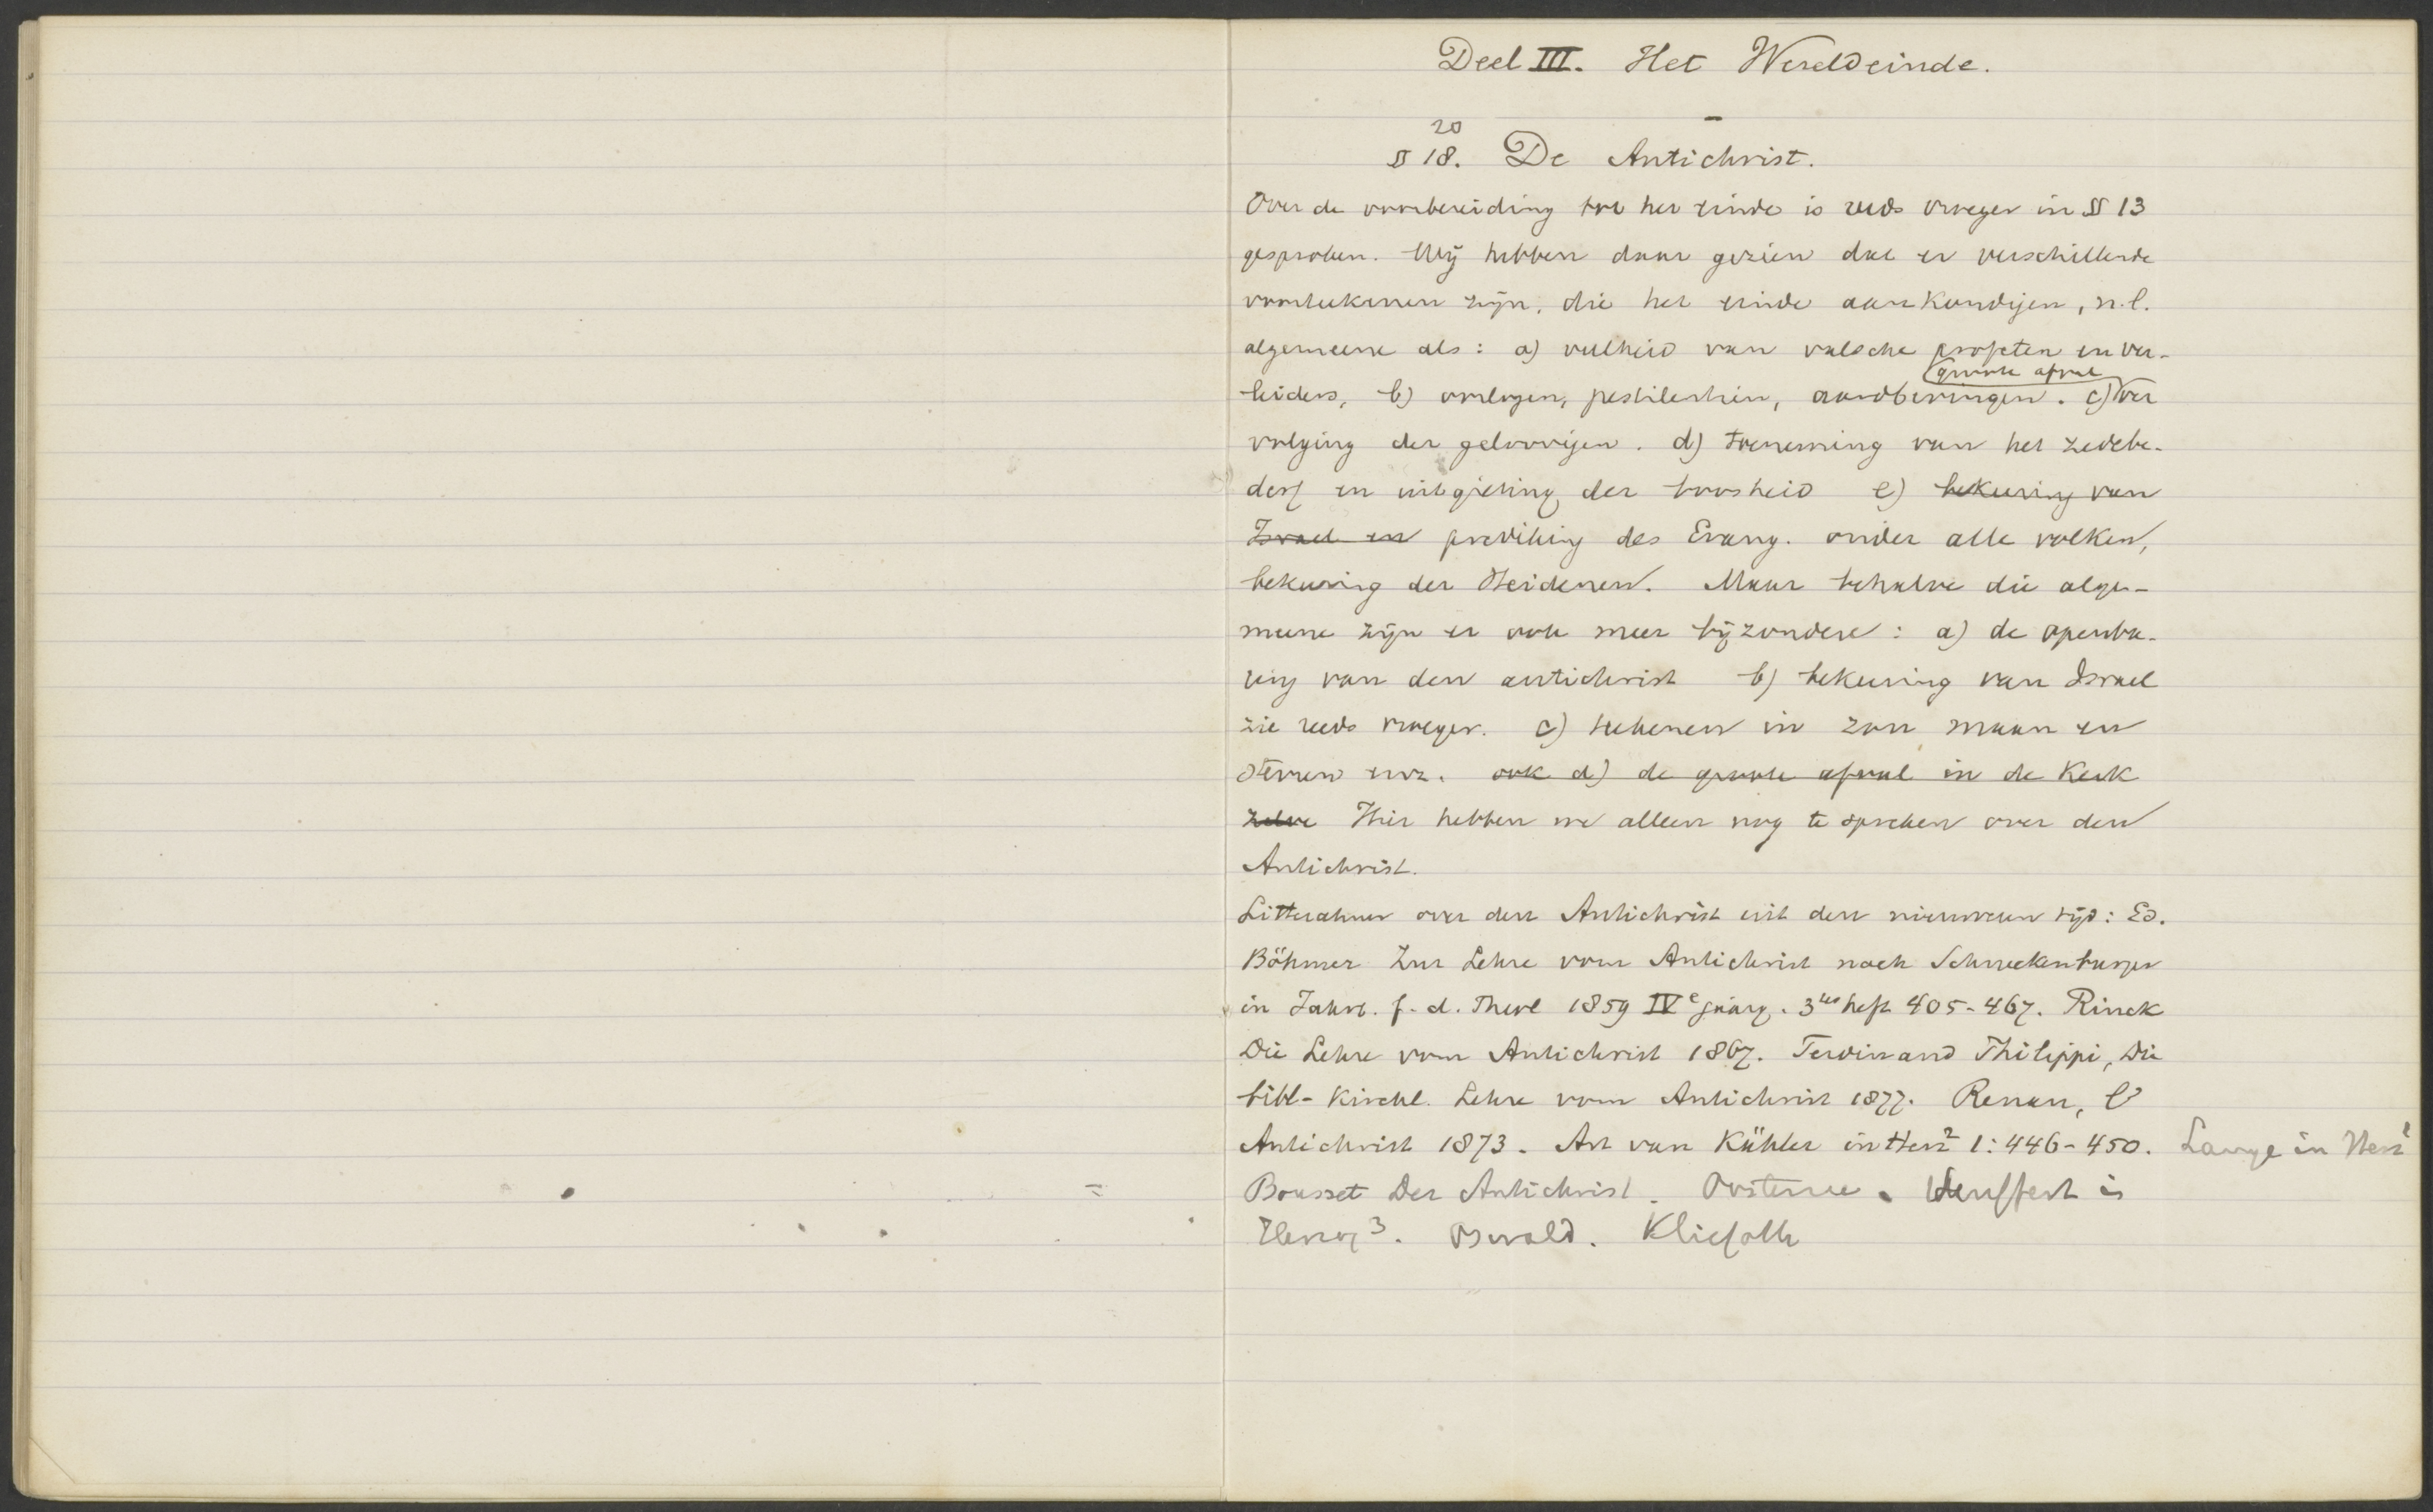 Deel III. Het Wereldeinde.
20
§ 18. De Antichrist.
Over de voorbereiding tot het einde is reeds vroeger in § 13
gesproken. Wij hebben daar gezien dat er verschillende
voorteekenen zijn, die het einde aankondigen, n.l.
algemeene als: a) veelheid van valsche profeten en ver-
groote afval
leiders, b) oorlogen, pestilentiën, aardbevingen. c) ver
volging der geloovigen. d) toeneming van het zedebe-
derf en uitgieting der boosheid e) bekeering van
Israel en prediking des Evang. onder alle volken,
bekeering der Heidenen. Maar behalve die alge-
meene zijn er ook meer bijzondere: a) de openba-
ring van den antichrist b) bekeering van Israel
zie reeds vroeger. c) teekenen in zon maan en
sterren enz. ook d) de groote afval in de Kerk
zelve Hier hebben we alleen nog te spreken over den
Antichrist.
Litteratuur over den Antichrist uit den nieuweren tijd: Ed.
Böhmer Zur Lehre vom Antichrist nach Schneckenburger
in Jahrb. f. d. Theol 1859 IVe jaarg. 3tes heft 405-467. Rinck
Die Lehre vom Antichrist 1867. Ferdinand Philippi, Die
bibl-kirchl. Lehre vom Antichrist 1877. Renan, l'
Antichrist 1873. Art van Kähler in Herz2 1:446-450. Lange in Herz1
Bousset Der Antichrist. Oosterzee. in
Herzog3. Oswald. Kliefoth